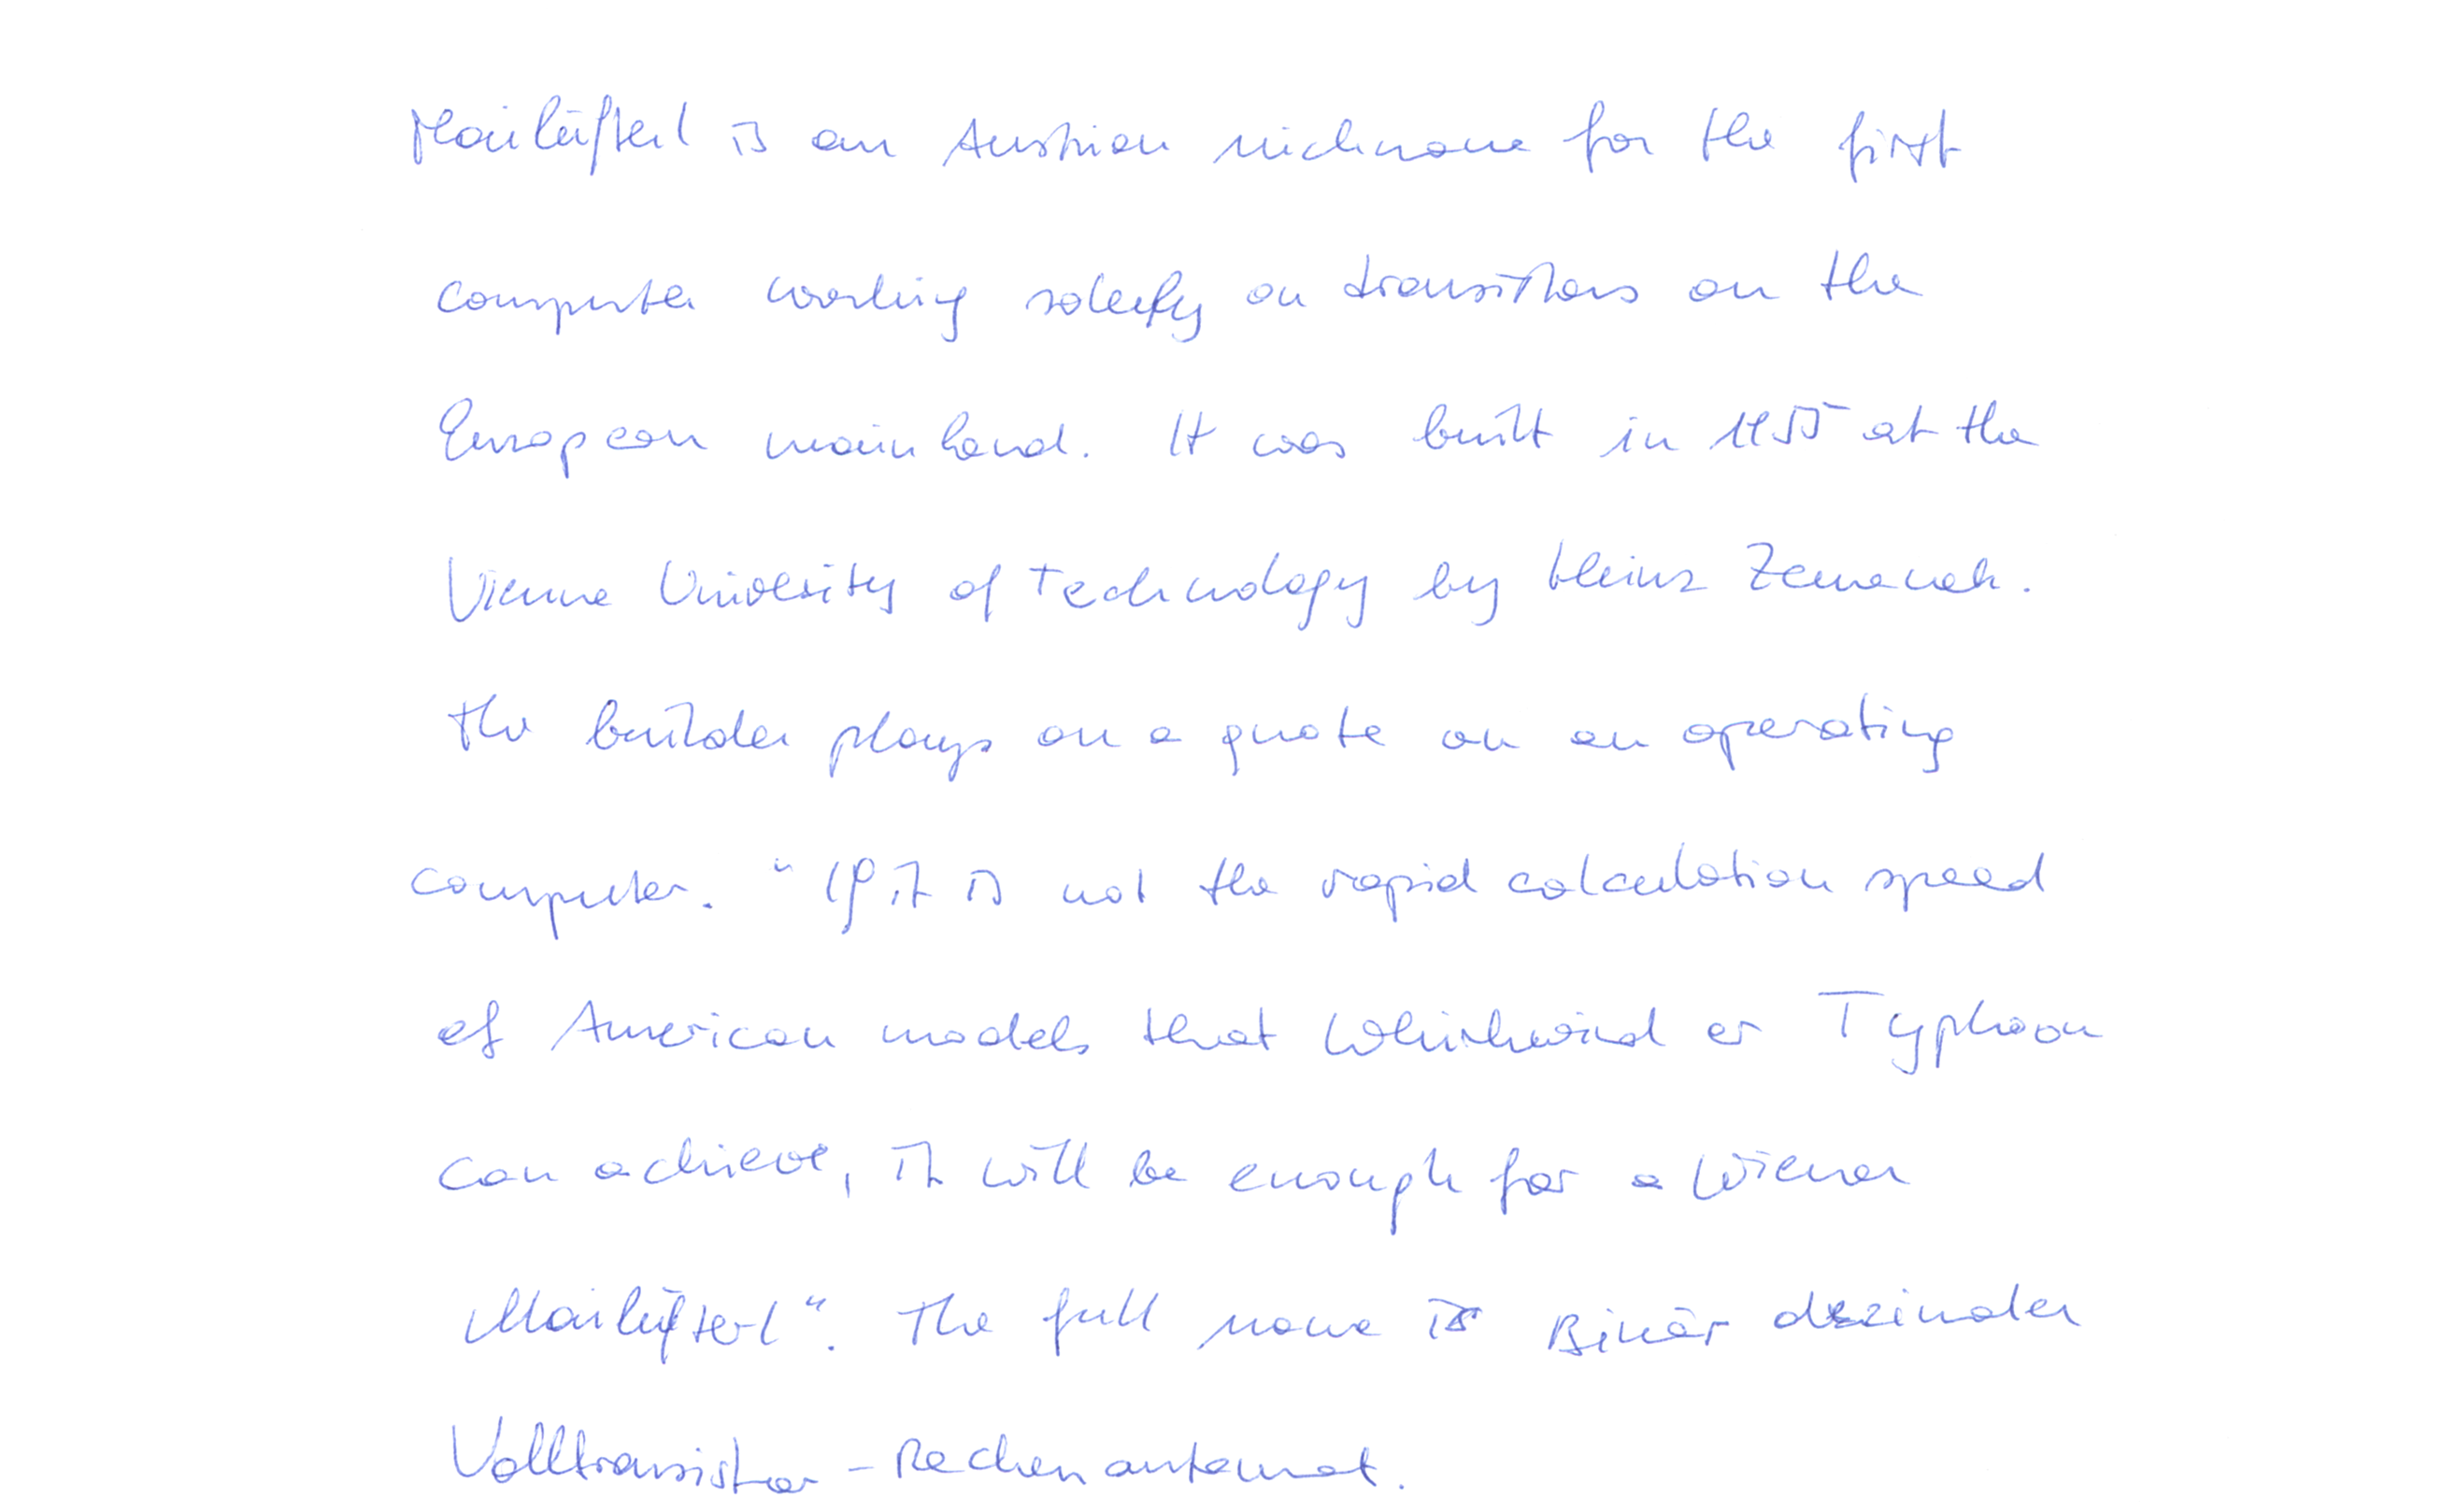 Mailüfterl is an Austrian nickname for the first
computer working solely on transistors on the
European mainland. It was built in 1955 at the
Vienna University of Technology by Heinz Zemanek.
The builder plays on a quote on an operating
computer. "If it is not the rapid calculation speed
of American models that Whirlwind or Typhoon
can achieve, it will be enough for a Wiener
Mailüfterl". The full name is Binär dezimaler
Volltransistor - Rechenautomat.